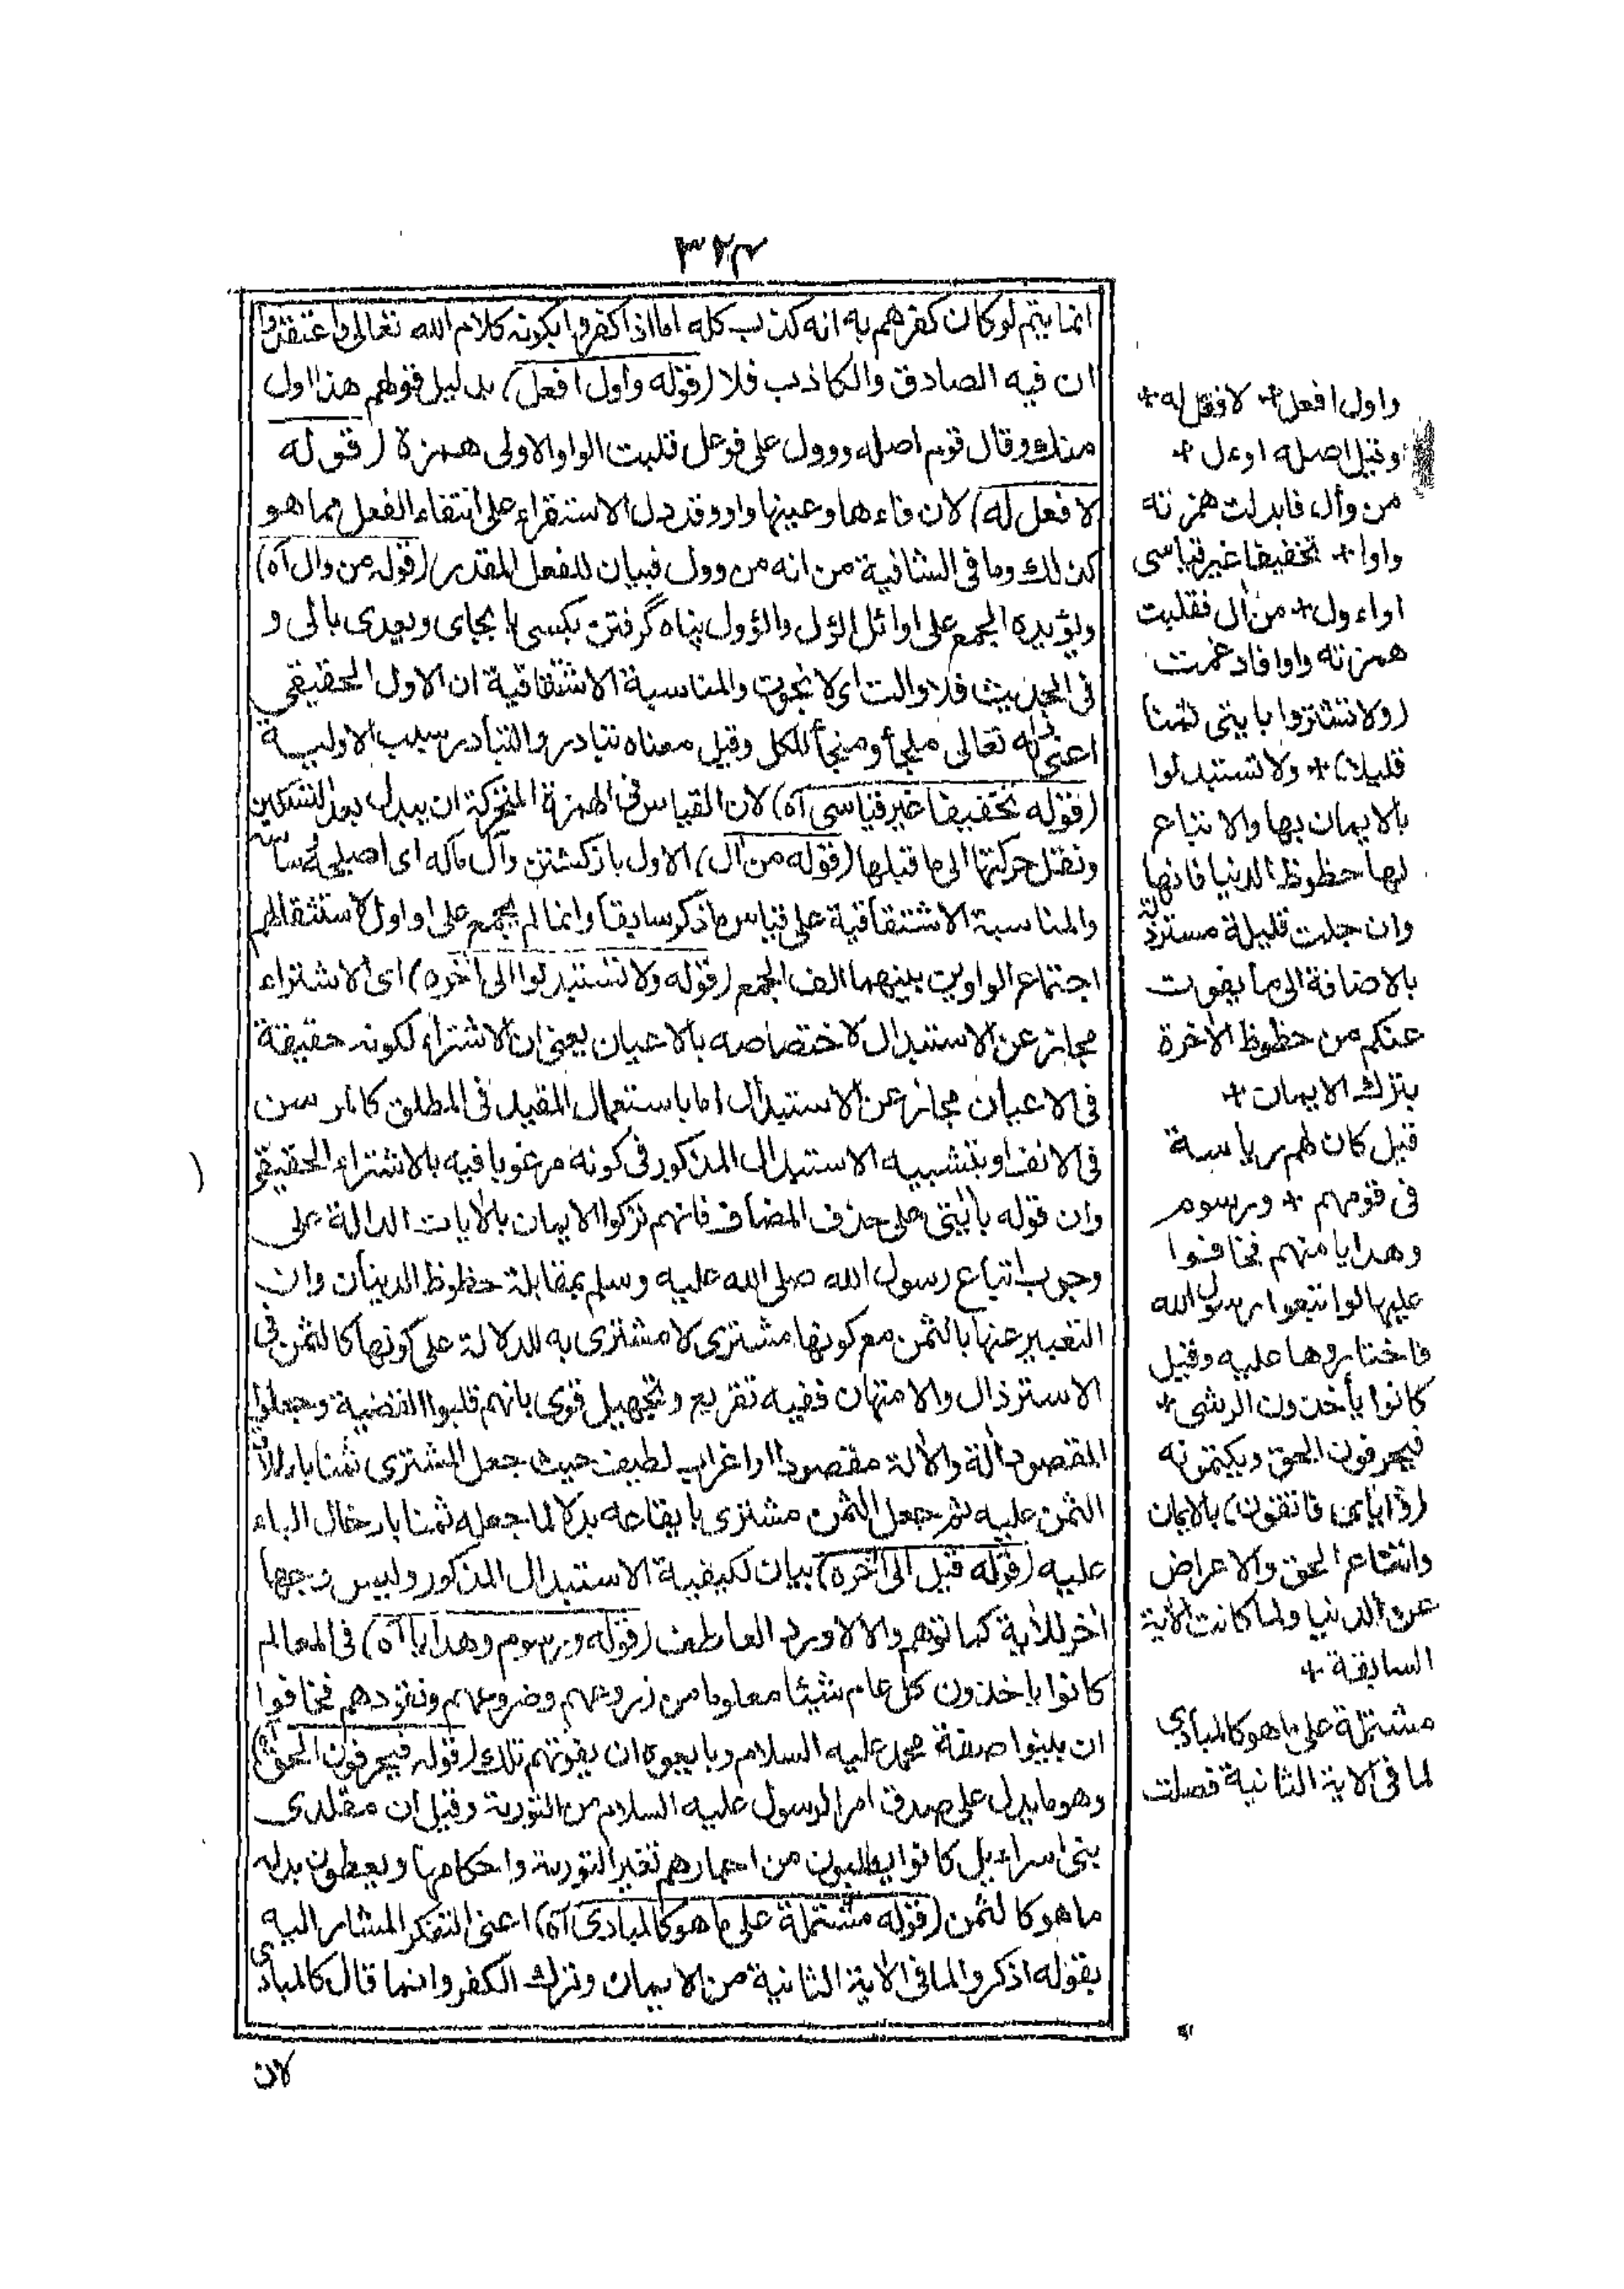 ٣٢٣
انما يتم لو كان كفرهم به انه كذب كله اما اذا كفروا بكونه كلام الله تعالى واعتقدوا
ان فيه الصادق والكاذب فلا (قوله واول افعل) بدليل قولهم هذا اول
منك وقال قوم اصله ووول على فوعل قلبت الواو الاولى همزة (قوله
لا فعل له) لان فاءها وعينها واو وقد دل الاستقراء على انتفاء الفعل مما هو
كذلك وما فى الشافية من انه من وول فبيان للفعل المقدر (قوله من وال آه)
ويؤيده الجمع على اوائل الؤل والؤول پناه گرفتن بكسى يا بجاى ويعدى بالى و
فى الحديث فلا والت اى لا نجوت والمناسبة الاشتقاقية ان الاول الحقيقى
اعنى ذاته تعالى ملجأ ومنجأ للكل وقيل معناه تبادر والتبادر سبب الاولية
(قوله تخفيفا غير قياسى آه) لان القياس فى الهمزة المتحركة ان يبدل بعد التسكين
ونقل حركتها الى ما قبلها (قوله من آل) الاول بازگشتن وآل ماله اى اصلحه وساسه
والمناسبة الاشتقاقية على قياس ما ذكر سابقا وانما لم يجمع على اواول لاستثقالهم
اجتماع الواوين بينهما الف الجمع (قوله ولا تستبدلوا الى آخره) اى الاشتراء
مجاز عن الاستبدال لاختصاصه بالاعيان يعنى ان الاشتراء لكونه حقيقة
فى الاعيان مجاز عن الاستبدال اما باستعمال المقيد فى المطلق كالمرسن
فى الانف او بتشبيه الاستبدال المذكور فى كونه مرغوبا فيه بالاشتراء الحقيقى
وان قوله بآيتى على حذف المضاف فانهم تركوا الايمان بالآيات الدالة على
وجوب اتباع رسول الله صلى الله عليه وسلم بمقابلة حظوظ الدنيا وان
التعبير عنها بالثمن مع كونها مشترى لا مشترى به للدلالة على كونها كالثمن فى
الاسترذال والامتهان ففيه تقريع وتجهيل قوى بانهم قلبوا القضية وجعلوا
المقصود آلة والآلة مقصودا واغراب لطيف حيث جعل المشترى ثمنا باطلاق
الثمن عليه ثم جعل الثمن مشترى بايقاعه بدلا لما جعله ثمنا بادخال الباء
عليه (قوله قيل الى آخره) بيان لكيفية الاستبدال المذكور وليس وجها
آخر للآية كما توهم والا لاورد العاطف (قوله ورسوم وهدايا آه) فى المعالم
كانوا ياخذون كل عام شيئا معلوما من زروعهم وضروعهم ونقودهم فخافوا
ان بينوا صفة محمد عليه السلام وبايعوه ان يفوتهم تلك (قوله فيحرفون الحق آه)
وهو ما يدل على صدق امر الرسول عليه السلام من التورية وقيل ان مقلدى
بنى اسراءيل كانوا يطلبون من احبارهم تغير التورية واحكامها ويعطون بدله
ما هو كالثمن (قوله مشتملة على ما هو كالمبادى آه) اعنى التفكر المشار اليه
بقوله اذكروا لما فى الآية الثانية من الايمان وترك الكفر وانما قال كالمبادى
لان
واول افعل + لا فعل له +
وقيل اصله اوءل +
من وأل فابدلت همزته
واوا + تخفيفا غير قياسى
او اءول + من أل فقلبت
همزته واوا فادغمت
(ولا تشتروا بآيتى ثمنا
قليلا) + ولا تستبدلوا
بالايمان بها والاتباع
لها حظوظ الدنيا فانها
وان جلت قليلة مسترذلة
بالاضافة الى ما يفوت
عنكم من حظوظ الآخرة
بترك الايمان +
قيل كان لهم رياسة
فى قومهم + ورسوم
وهدايا منهم فخافوا
عليها لو اتبعوا رسول الله
فاختاروها عليه وقيل
كانوا يأخذون الرشى +
فيحرفون الحق ويكتمونه
(واياى فاتقون) بالايمان
واتباع الحق والاعراض
عن الدنيا ولما كانت الآية
السابقة +
مشتملة على ما هو كالمبادى
لما فى الآية الثانية فصلت